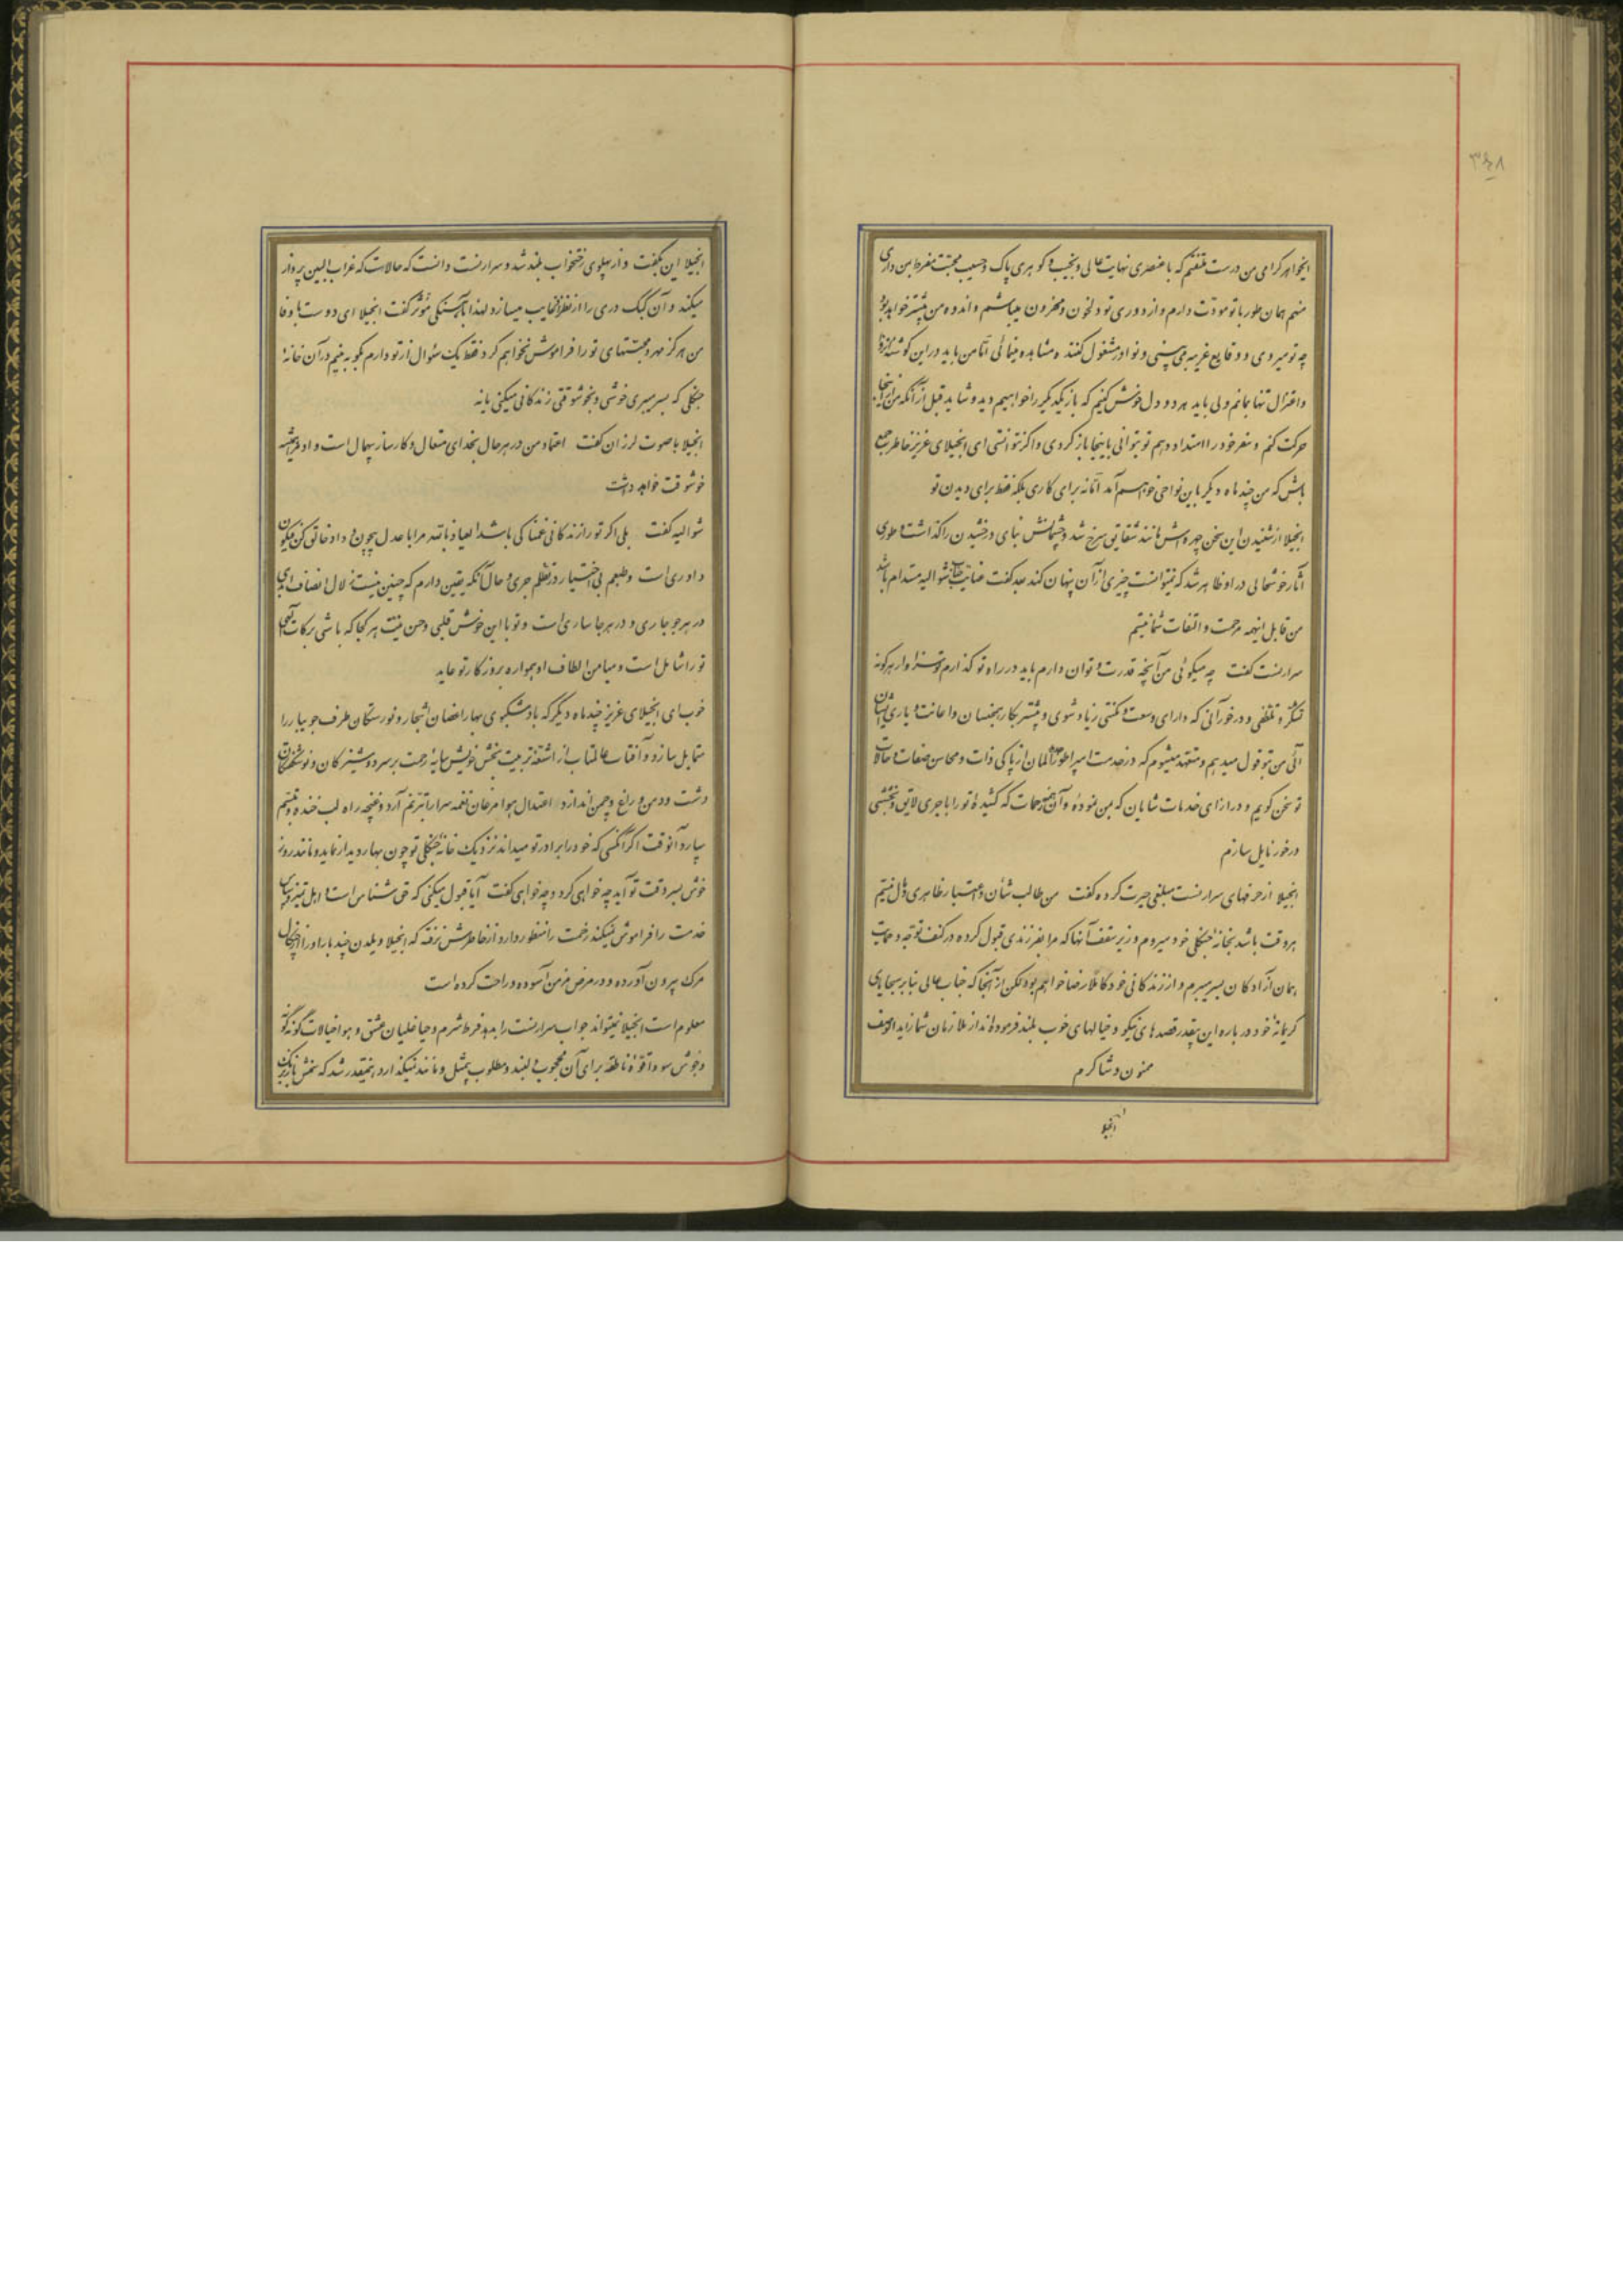 ۳۴۸
ایخواهر کرامی من درست ملتفتم که با عنصری نهایت عالی و نجیب و کوهری پاک و حسیب محبت مفرط بمن داری
منهم همان طور با تو مودّت دارم و از دوری تو دلخون و محزون میباشم و اندوه من بیشتر خواهد بود
چه تو میروی و وقایع غریبه می بینی و نوادر مشغول کننده مشاهده مینمائی امّا من باید در این کوشه
و اعتزال تنها بمانم ولی باید هر دو دل خوش کنیم که باز یکدیکر را خواهیم دید و شاید قبل از آنکه من از اینجا
حرکت کنم و سفر خود را امتداد دهم تو بتوانی باینجا باز کردی و اکر نتوانستی ای انجیلای عزیز خاطر جمع
باش که من چند ماه دیکر باین نواحی خواهم آمد امّا نه برای کاری بلکه فقط برای دیدن تو
انجیلا از شنیدن این سخن چهره اش مانند شقایق سرخ شد و چشمانش بنای درخشیدن را کذاشت و طوری
آثار خوشحالی در او ظاهر شد که نتوانست چیزی از آن پنهان کند بعد کفت عنایت جناب شوالیه مستدام باشد
من قابل اینهمه مرحمت و التفات شما نیستم
سرارنست کفت چه میکوئی من آنچه قدرت و توان دارم باید در راه تو کذارم تو سزاوار هرکونه
تشکر و تلطفی و در خور آنی که دارای وسعت و مکنتی زیاد شوی و بیشتر بکار همجنسان و اعانت و یاری ایشان
آئی من بتو قول میدهم و متعهد میشوم که در خدمت امپراطور آلمان از پاکی ذات و محاسن صفات و حالات
تو سخن کویم و در ازای خدمات شایان که بمن نموده و آن همه زحمات که کشیدۀ تو را با جری لایق و بخششی
در خور نایل سازم
انجیلا از حرفهای سرارنست مبلغی حیرت کرده کفت من طالب شأن و اعتبار ظاهری و مال نیستم
هر وقت باشد بخانۀ جنکلی خود میروم و زیر سقف آنها که مرا بفرزندی قبول کرده در کنف توجه و حمایت
همان آزادکان بسر میبرم و از زندکانی خود کاملاً رضا خواهم بود لکن از آنجا که جناب عالی بنا بر سجایای
کریمانۀ خود در باره این بنده قصدهای نیکو و خیالهای خوب بلند فرموده‌اند از ملازمان شما زاید الوصف
ممنون و شاکرم
انجیلا
انجیلا این بکفت و از پهلوی رختخواب بلند شد و سرارنست دانست که حالاست که غراب البین پرواز
میکند و آن کبک دری را از نظر غایب میسازد لهذا با آهستکی مؤثر کفت انجیلا ای دوست با وفا
من هرکز مهر و محبتهای تو را فراموش نخواهم کرد فقط یک سئوال از تو دارم بکو به بینم در آن خانۀ
جنکلی که بسر میبری خوشی و بخوشوقتی زندکانی میکنی یا نه
انجیلا با صوت لرزان کفت اعتماد من در هر حال بخدای متعال و کارساز بیهمال است و او مرا همیشه
خوشوقت خواهد داشت
شوالیه کفت بلی اکر تو را زندکانی غمناکی باشد العیاذ بالله مرا با عدل بیچون و داد خالق کن فیکون
داوری است و طبعم بی اختیار در تظلم جری و حال آنکه یقین دارم که چنین نیست زلال انصاف ایزدی
در هر جو جاری و در هر جا ساری است و تو با این خوش قلبی و حسن نیت هر کجا که باشی برکات آلهی
تو را شامل است و میامن الطاف او همواره بروزکار تو عاید
خوب ای انجیلای عزیز چند ماه دیکر که باد مشکبوی بهار اغصان اشجار و نورستکان طرف جویبار را
متمایل سازد و آفتاب عالمتاب از اشعۀ تربیت بخش خویش سایۀ رحمت بر سر دوشیزکان و نوشکفتکان
دشت و دمن و راغ و چمن اندازد اعتدال هوا مرغان نغمه سرا را بترنم آرد و غنچه را به لب خنده و تبسم
بیارد آنوقت اکر آنکسی که خود را برادر تو میداند نزدیک خانۀ جنکلی تو چون بهار دیدار نماید و مانند روز
خوش بسر وقت تو آید چه خواهی کرد و چه خواهی کفت آیا قبول میکنی که حق شناس است و اهل تمیز و سپاس
خدمت را فراموش نمیکند زحمت را منظور دارد از خاطرش نرفته که انجیلا ویلدن چند بار او را از چنکال
مرک بیرون آورده و در مرض مزمن آسوده و راحت کرده است
معلوم است انجیلا نمیتواند جواب سرارنست را بدهد فرط شرم و حیا غلیان عشق و هوا خیالات کوناکون
و جوش سودا قوۀ ناطقه برای آن محبوب دلبند و مطلوب بیمثل و مانند نمیکذارد اینقدر شد که سخن